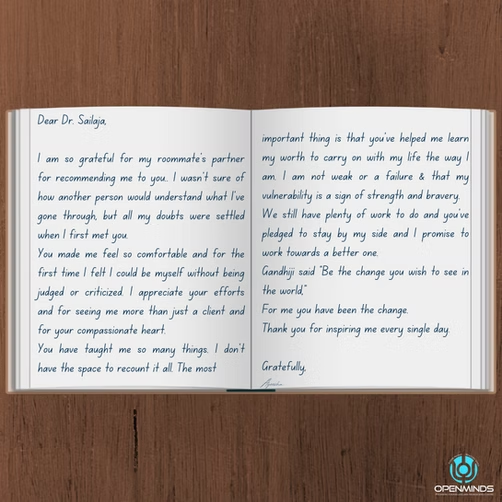 Dear Dr. Sailaja,
I am so grateful for my roommate's partner
for recommending me to you.. I wasn't sure of
how another person would understand what I've
gone through, but all my doubts were settled
when I first met you.
You made me feel so comfortable and for the
first time I felt I could be myself without being
judged or criticized. I appreciate your efforts
and for seeing me more than just a client and
for your compassionate heart.
You have taught me so many things. I don't
have the space to recount it all. The most
important thing is that you've helped me learn
my worth to carry on with my life the way I
am. I am not weak or a failure & that my
vulnerability is a sign of strength and bravery.
We still have plenty of work to do and you've
pledged to stay by my side and I promise to
work towards a better one.
Gandhiji said "Be the change you wish to see in
the world."
For me you have been the change.
Thank you for inspiring me every single day.
Gratefully,
OPENMINDS